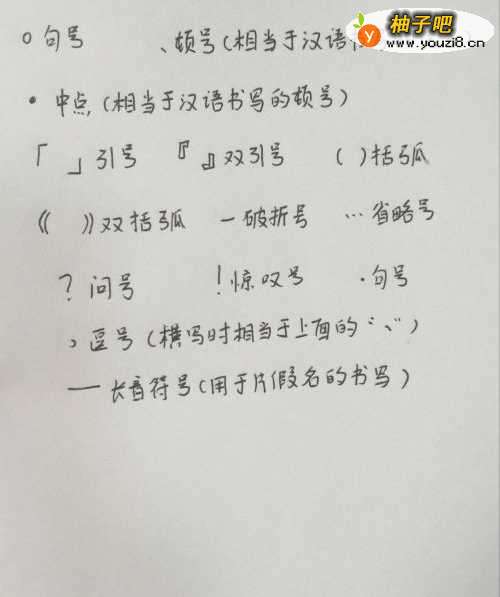 柚子吧
www.youzi8.cn
。句号 、顿号(相当于汉语
• 中点(相当于汉语书写的顿号)
「 」引号 『 』双引号 ( )括弧
《 》双括弧 —破折号 …省略号
? 问号 !惊叹号 .句号
, 逗号(横写时相当于上面的“、”)
— 长音符号(用于片假名的书写)